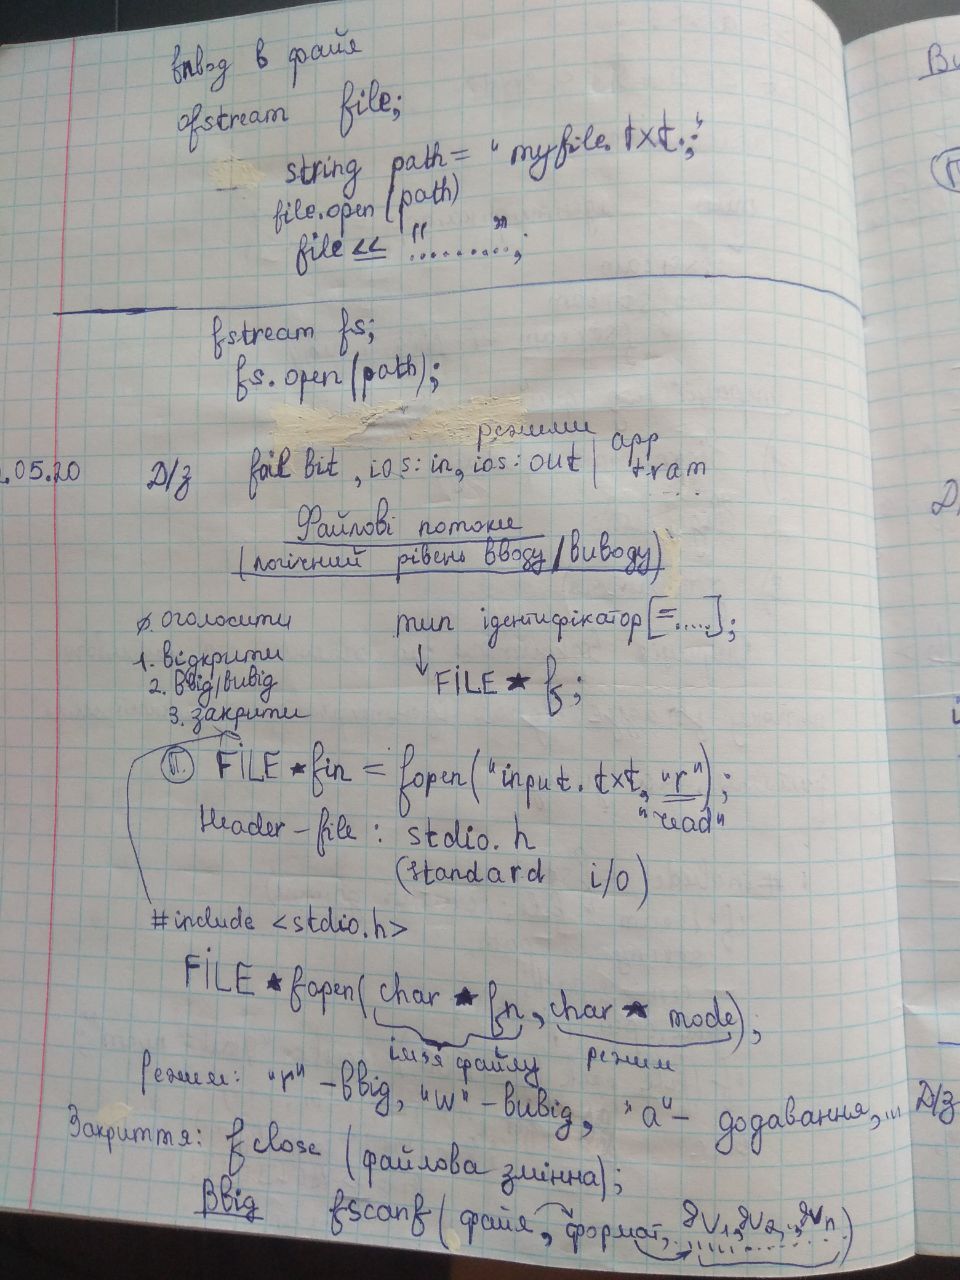 ввод в файл
ofstream file;
string path = "myfile.txt.;"
file.open(path)
file << ".........";
fstream fs;
fs.open(path);
режими
.05.20 Д/з fail bit, ios:in, ios:out | app
Файлові потоки
(логічний рівень вводу/виводу)
0. оголосити тип ідентифікатор[=.....];
1. відкрити
2. ввід/вивід FILE * f;
3. закрити
П. FILE * fin = fopen("input.txt, "r");
"read"
Header-file: stdio.h
(standard i/o)
#include <stdio.h>
FILE * fopen(char * fn, char * mode);
імя файлу режим
Режим: "r" - ввід, "w" - вивід, "a" - додавання,...
Закриття: fclose (файлова змінна);
Ввід fscanf(файл, формат, &v1,&v2,..,&vn)
Ви
П
Д/з